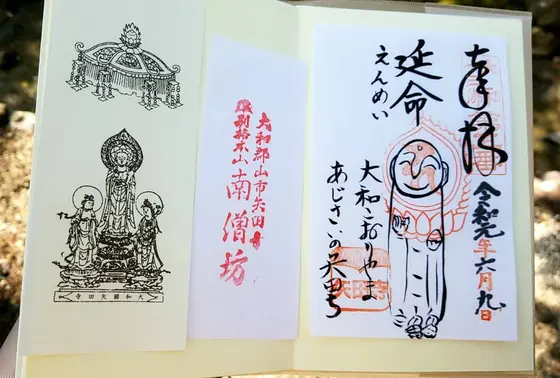 奉拝
令和元年六月九日
延命
えんめい
大和こおりやま
あじさいの
大和郡山市矢田寺
別格本山 南僧坊
大和國矢田寺